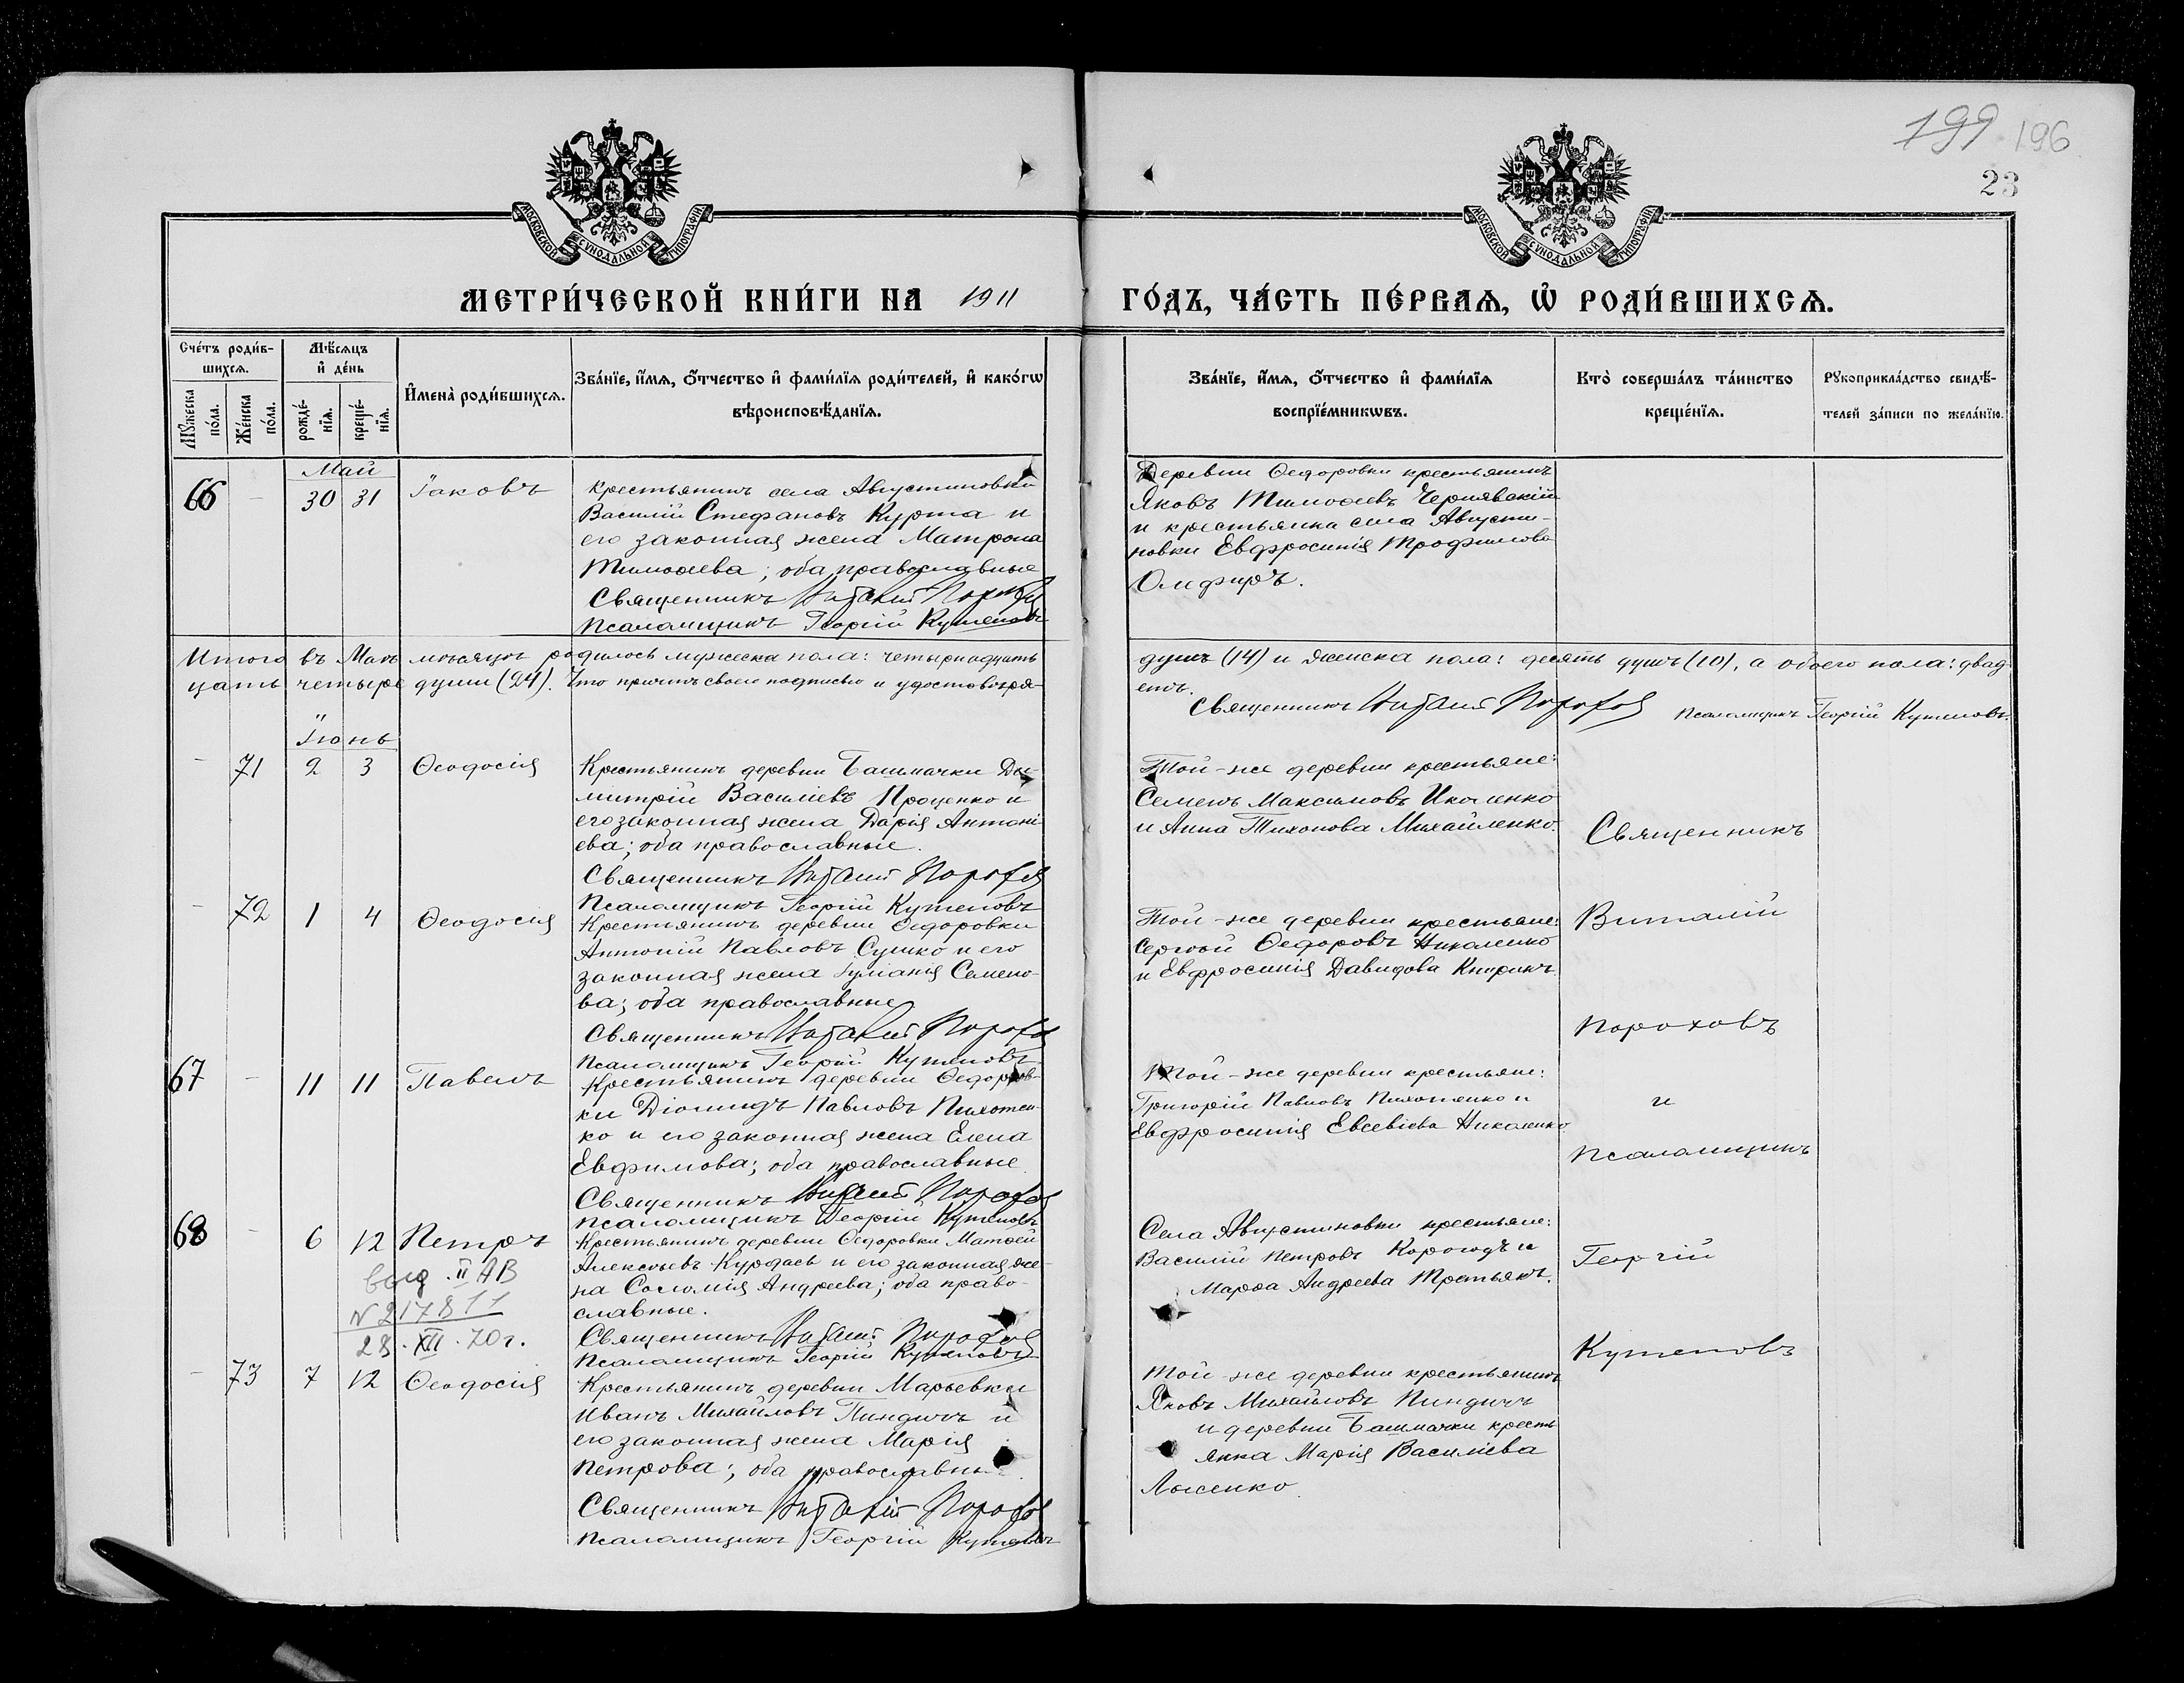 199 196
23
МОСКОВСКОЙ СУНОДАЛЬНОЙ ТИПОГРАФІИ
МОСКОВСКОЙ СУНОДАЛЬНОЙ ТИПОГРАФІИ
МЕТРИ́ЧЕСКОЙ КНИ́ГИ НА 1911 ГО́ДЪ, ЧА́СТЬ ПЕ́РВАѦ, Ѡ РОДИ́ВШИХСѦ.
Сче́тъ роди́в-
шихсѧ.
Мꙋжеска по́ла.
Же́нска по́ла.
Мѣ́сѧцъ
и҆ де́нь
рожде́-
нїѧ.
креще́-
нїѧ.
И҆мена̀ роди́вшихсѧ.
Зва́нїе, и҆́мѧ, ѻ҆́тчество и҆ фами́лїѧ роди́телей, и҆ како́гѡ
вѣроисповѣ́данїѧ.
Зва́нїе, и҆́мѧ, ѻ҆́тчество и҆ фами́лїѧ
воспрїе́мникѡвъ.
Кто̀ соверша́лъ та́инство
креще́нїѧ.
Рꙋкоприкла́дство свидѣ́-
телей за́писи по жела́нїю.
Май
66 - 30 31 Іаковъ
Крестьянинъ села Августиновки
Василій Стефановъ Курта и
его законная жена Матрона
Тимоѳеева; оба православные
Священникъ Виталий Порохов
Псаломщикъ Георгій Кутеповъ
Деревни Ѳедоровки крестьянинъ
Яковъ Тимоѳеевъ Чернявскій
и крестьянка села Августи-
новки Евфросинія Трофимова
Олифиръ.
Итого въ Маѣ мѣсяцѣ родилось мужеска пола: четырнадцать душъ (14) и женска пола: десять душъ (10), а обоего пола: двад-
цать четыре души (24). Что причтъ своею подписью и удостовѣря-
етъ.
Священникъ Виталий Порохов Псаломщикъ Георгій Кутеповъ.
Іюнь
- 71 2 3 Ѳеодосія
Крестьянинъ деревни Башмачки Ди-
митрій Василіевъ Проценко и
его законная жена Дарія Антоні-
ева; оба православные.
Священникъ Виталий Порохов
Псаломщикъ Георгій Кутеповъ
Той-же деревни крестьяне:
Семенъ Максимовъ Иколенко
и Анна Тихонова Михайленко.
Священникъ
- 72 1 4 Ѳеодосія
Крестьянинъ деревни Ѳедоровки
Антоній Павловъ Сушко и его
законная жена Іуліанія Семено-
ва; оба православные
Священникъ Виталий Порохов
Псаломщикъ Георгій Кутеповъ
Той-же деревни крестьяне:
Сергѣй Ѳедоровъ Николенко
и Евфросинія Давидова Книрикъ.
Виталій
Пороховъ
67 - 11 11 Павелъ
Крестьянинъ деревни Ѳедоров-
ки Діомидъ Павловъ Пихотен-
ко и его законная жена Елена
Евфимова; оба православные.
Священникъ Виталий Порохов
Псаломщикъ Георгій Кутеповъ
Той-же деревни крестьяне:
Григорій Павловъ Пихотенко и
Евфросинія Евсевіева Николенко
и
Псаломщикъ
68 - 6 12 Петръ
выд. II АВ
N 217811
28.XII.70г.
Крестьянинъ деревни Ѳедоровки Матѳей
Алексѣевъ Курдаев и его законная же-
на Соломія Андреева; оба право-
славные.
Священникъ Виталий Порохов
Псаломщикъ Георгій Кутеповъ
Села Августиновки крестьяне:
Василій Петровъ Корогодъ и
Марѳа Андреева Третьякъ.
Георгій
Кутеповъ
- 73 7 12 Ѳеодосія
Крестьянинъ деревни Марьевки
Иванъ Михайловъ Пиндичъ и
его законная жена Марія
Петрова; оба православные.
Священникъ Виталий Порохов
Псаломщикъ Георгій Кутеповъ
Той-же деревни крестьянинъ
Яковъ Михайловъ Пиндичъ
и деревни Башмачки кресть
янка Марія Василіева
Лысенко.